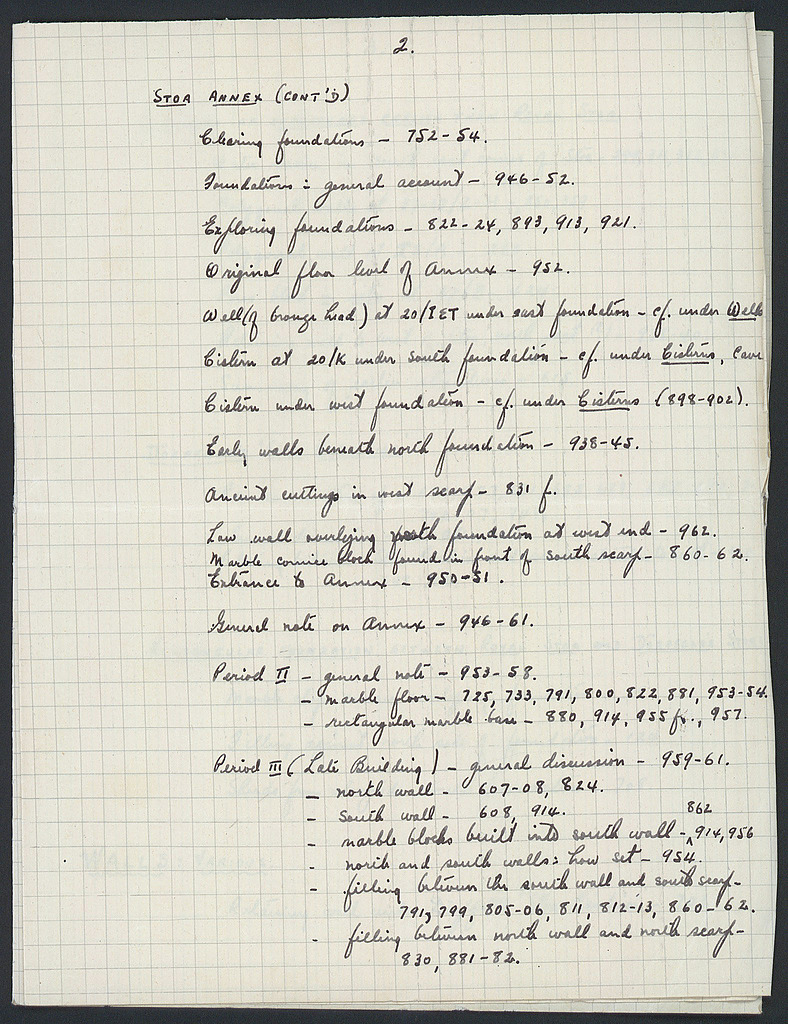 2.
STOA ANNEX (CONT'D)
Clearing foundations – 752-54.
Foundations: general account – 946-52.
Exploring foundations – 822-24, 893, 913, 921.
Original floor level of Annex – 952.
Well (of bronze head) at 20/ΙΣΤ under east foundation – cf. under Wells
Cistern at 20/K under south foundation – cf. under Cisterns, Cave
Cistern under west foundation – cf. under Cisterns (898-902).
Early walls beneath north foundation – 938-45.
Ancient cuttings in west scarp – 831 f.
Low wall overlying north foundation at west end – 962.
Marble cornice block found in front of south scarp – 860-62.
Entrance to Annex – 950-51.
General note on Annex – 946-61.
Period II – general note – 953-58.
– marble floor – 725, 733, 791, 800, 822, 881, 953-54.
– rectangular marble base – 880, 914, 955 f., 957.
Period III (Late Building) – general discussion – 959-61.
– north wall – 607-08, 824.
– south wall – 608, 914.
– marble blocks built into south wall – 862, 914, 956
– north and south walls: how set – 954.
– filling between the south wall and south scarp –
791, 799, 805-06, 811, 812-13, 860-62.
– filling between north wall and north scarp –
830, 881-82.